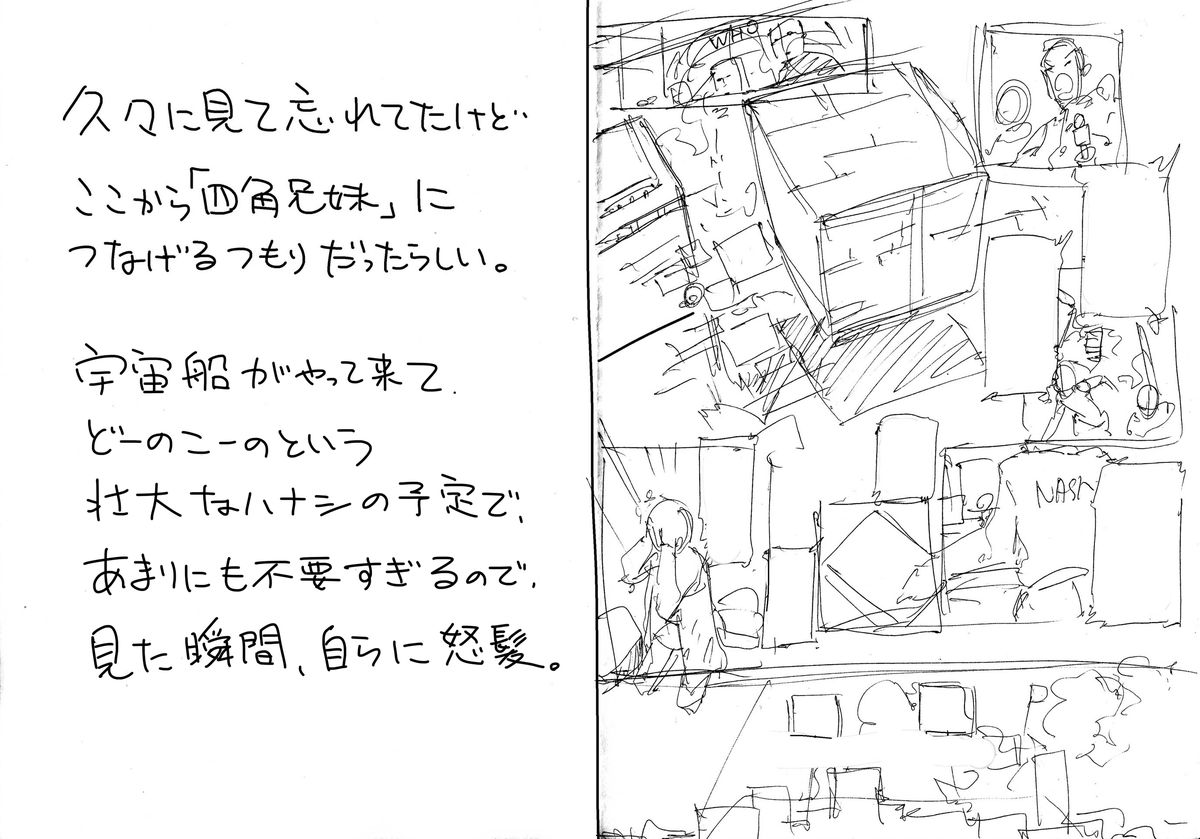 久々に見て忘れてたけど‥
ここから「四角兄妹」に
つなげるつもりだったらしい。
宇宙船がやって来て.
どーのこーのという
壮大なハナシの予定で、
あまりにも不要すぎるので、
見た瞬間、自らに怒髪。
WHO
NASA